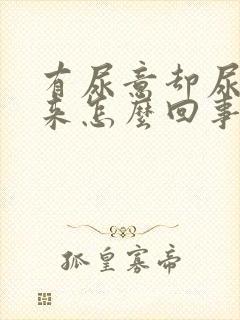 有尿意却尿
来怎麼回事
孤皇寡帝